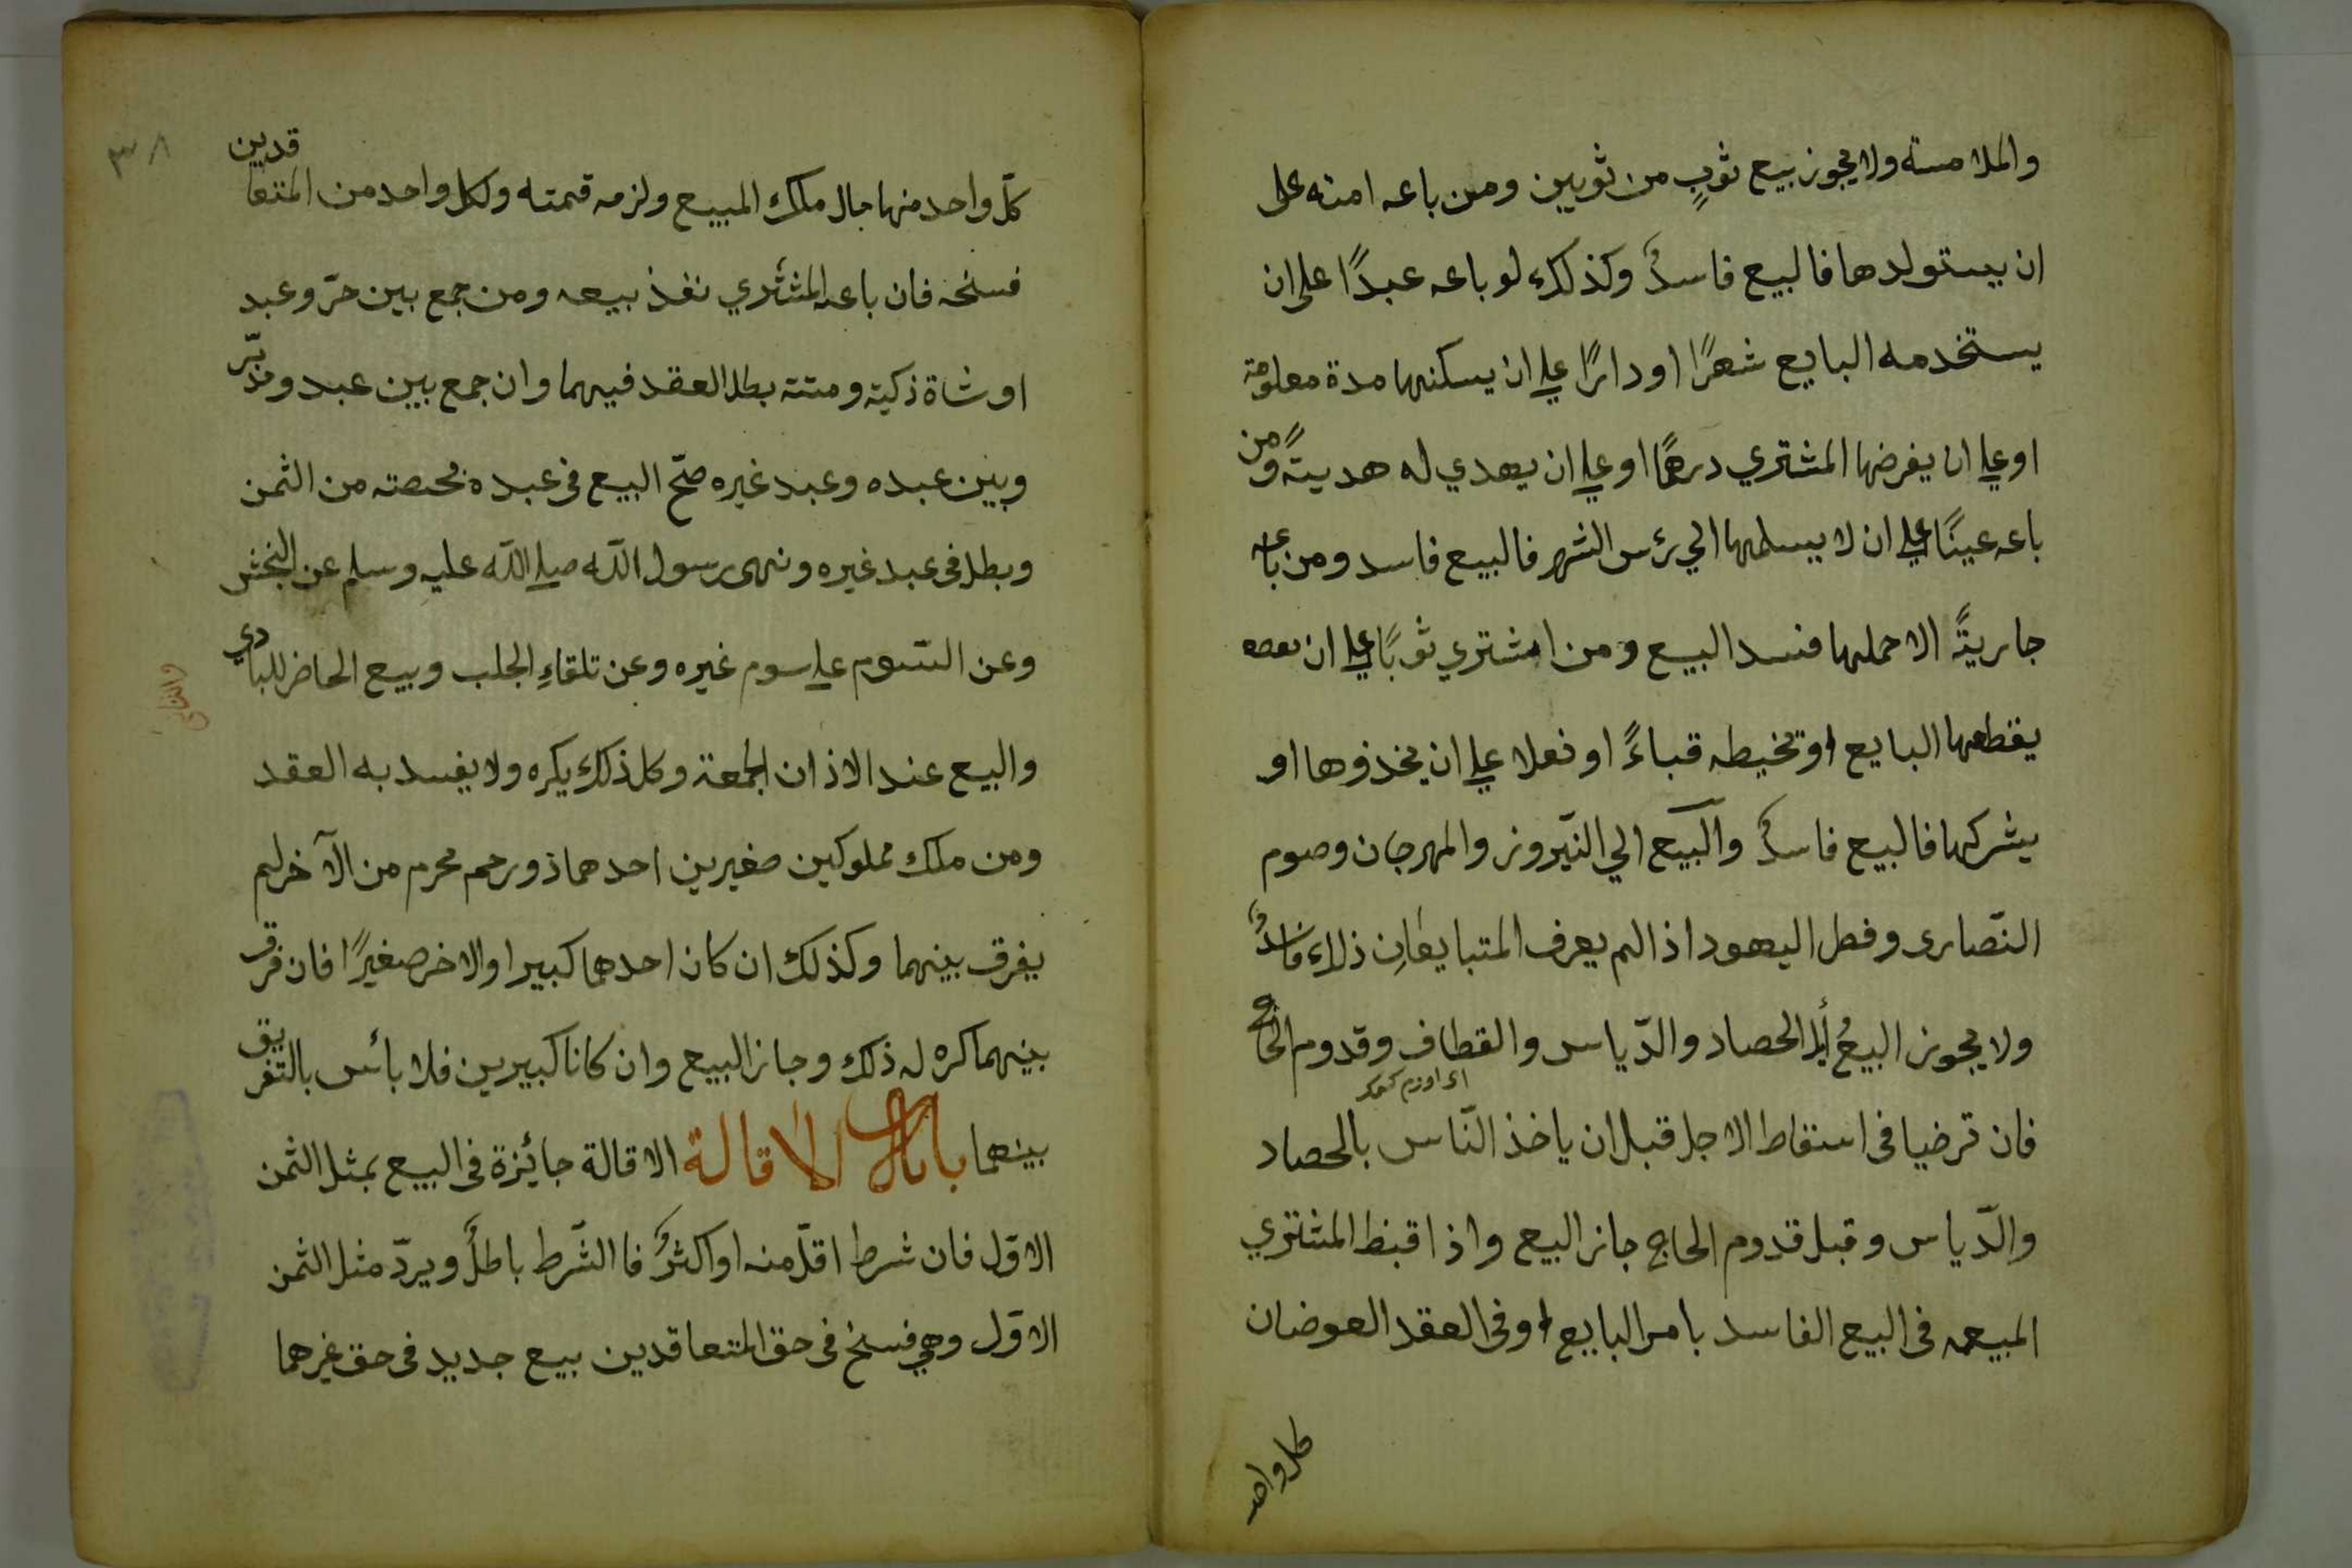 والملامسة ولا يجوز بيع ثوبٍ من ثوبين ومن باعه امته على
ان يستولدها فالبيع فاسدٌ وكذلك لو باعه عبدًا على ان
يستخدمه البايع شهرًا او دارًا على ان يسكنها مدة معلومة
او على ان يقرضها المشتري درهمًا او على ان يهدي له هديتًه ومن
باعه عينًا على ان لا يسلمها الي رئس الشهر فالبيع فاسد ومن باعه
جاريةً الا حملها فسد البيع ومن اشتري ثوبًا على ان
يقطعها البايع او تخيطه قباءً او نعلا على ان يخذوها او
يشركها فالبيع فاسدٌ والبيع الي النّيروز والمهرجان وصوم
النّصارى وفطر اليهود اذا لم يعرف المتبايعانِ ذلك فاسدٌ
ولا يجوز البيعُ إلى الحصاد والدّياس والقطاف وقدوم الحاج
فان ترضيا فى اسقاط الاجل قبل ان ياخذ النّاس بالحصاد
والدّياس وقبل قدوم الحاج جاز البيع واذا اقبط المشتري
المبيعه فى البيع الفاسد بامر البايع وفى العقد العوضان
كل واحد
٣٨
كلّ واحد منها جال ملك المبيع ولزمه قمته ولكل واحد من المتعاقدين
فسخه فان باعه المشتري نفذ بيعه ومن جمع بين حرّ وعبد
او شاة ذكية ومتته بطل العقد فيهما وان جمع بين عبد ومدبّر
وبين عبده وعبد غيره صحّ البيع فى عبده بحصته من الثمن
وبطل فى عبد غيره ونهى رسول الله صلى الله عليه وسلم عن النجش
وعن السّوم على سوم غيره وعن تلقاءِ الجلب وبيع الحاضر للبادي
والبيع عند الاذان الجمعة وكل ذلك يكره ولا يفسد به العقد
ومن ملك مملوكين صغيرين احدهما ذو رحم محرم من الآخر لم
يفرق بينهما وكذلك ان كان احدهما كبيرا والاخر صغيرًا فان فرق
بينهما كره له ذلك وجاز البيع وان كانا كبيرين فلا بائس بالتفريق
بينهما باب الاقالة الاقالة جائزة فى البيع بمثل الثمن
الاوّل فان شرط اقلّ منه او اكثرَ فا الشّرط باطلٌ ويردّ مثل الثمن
الاوّل وهي فسخ فى حق المتعاقدين بيع جديد فى حق غيرهما